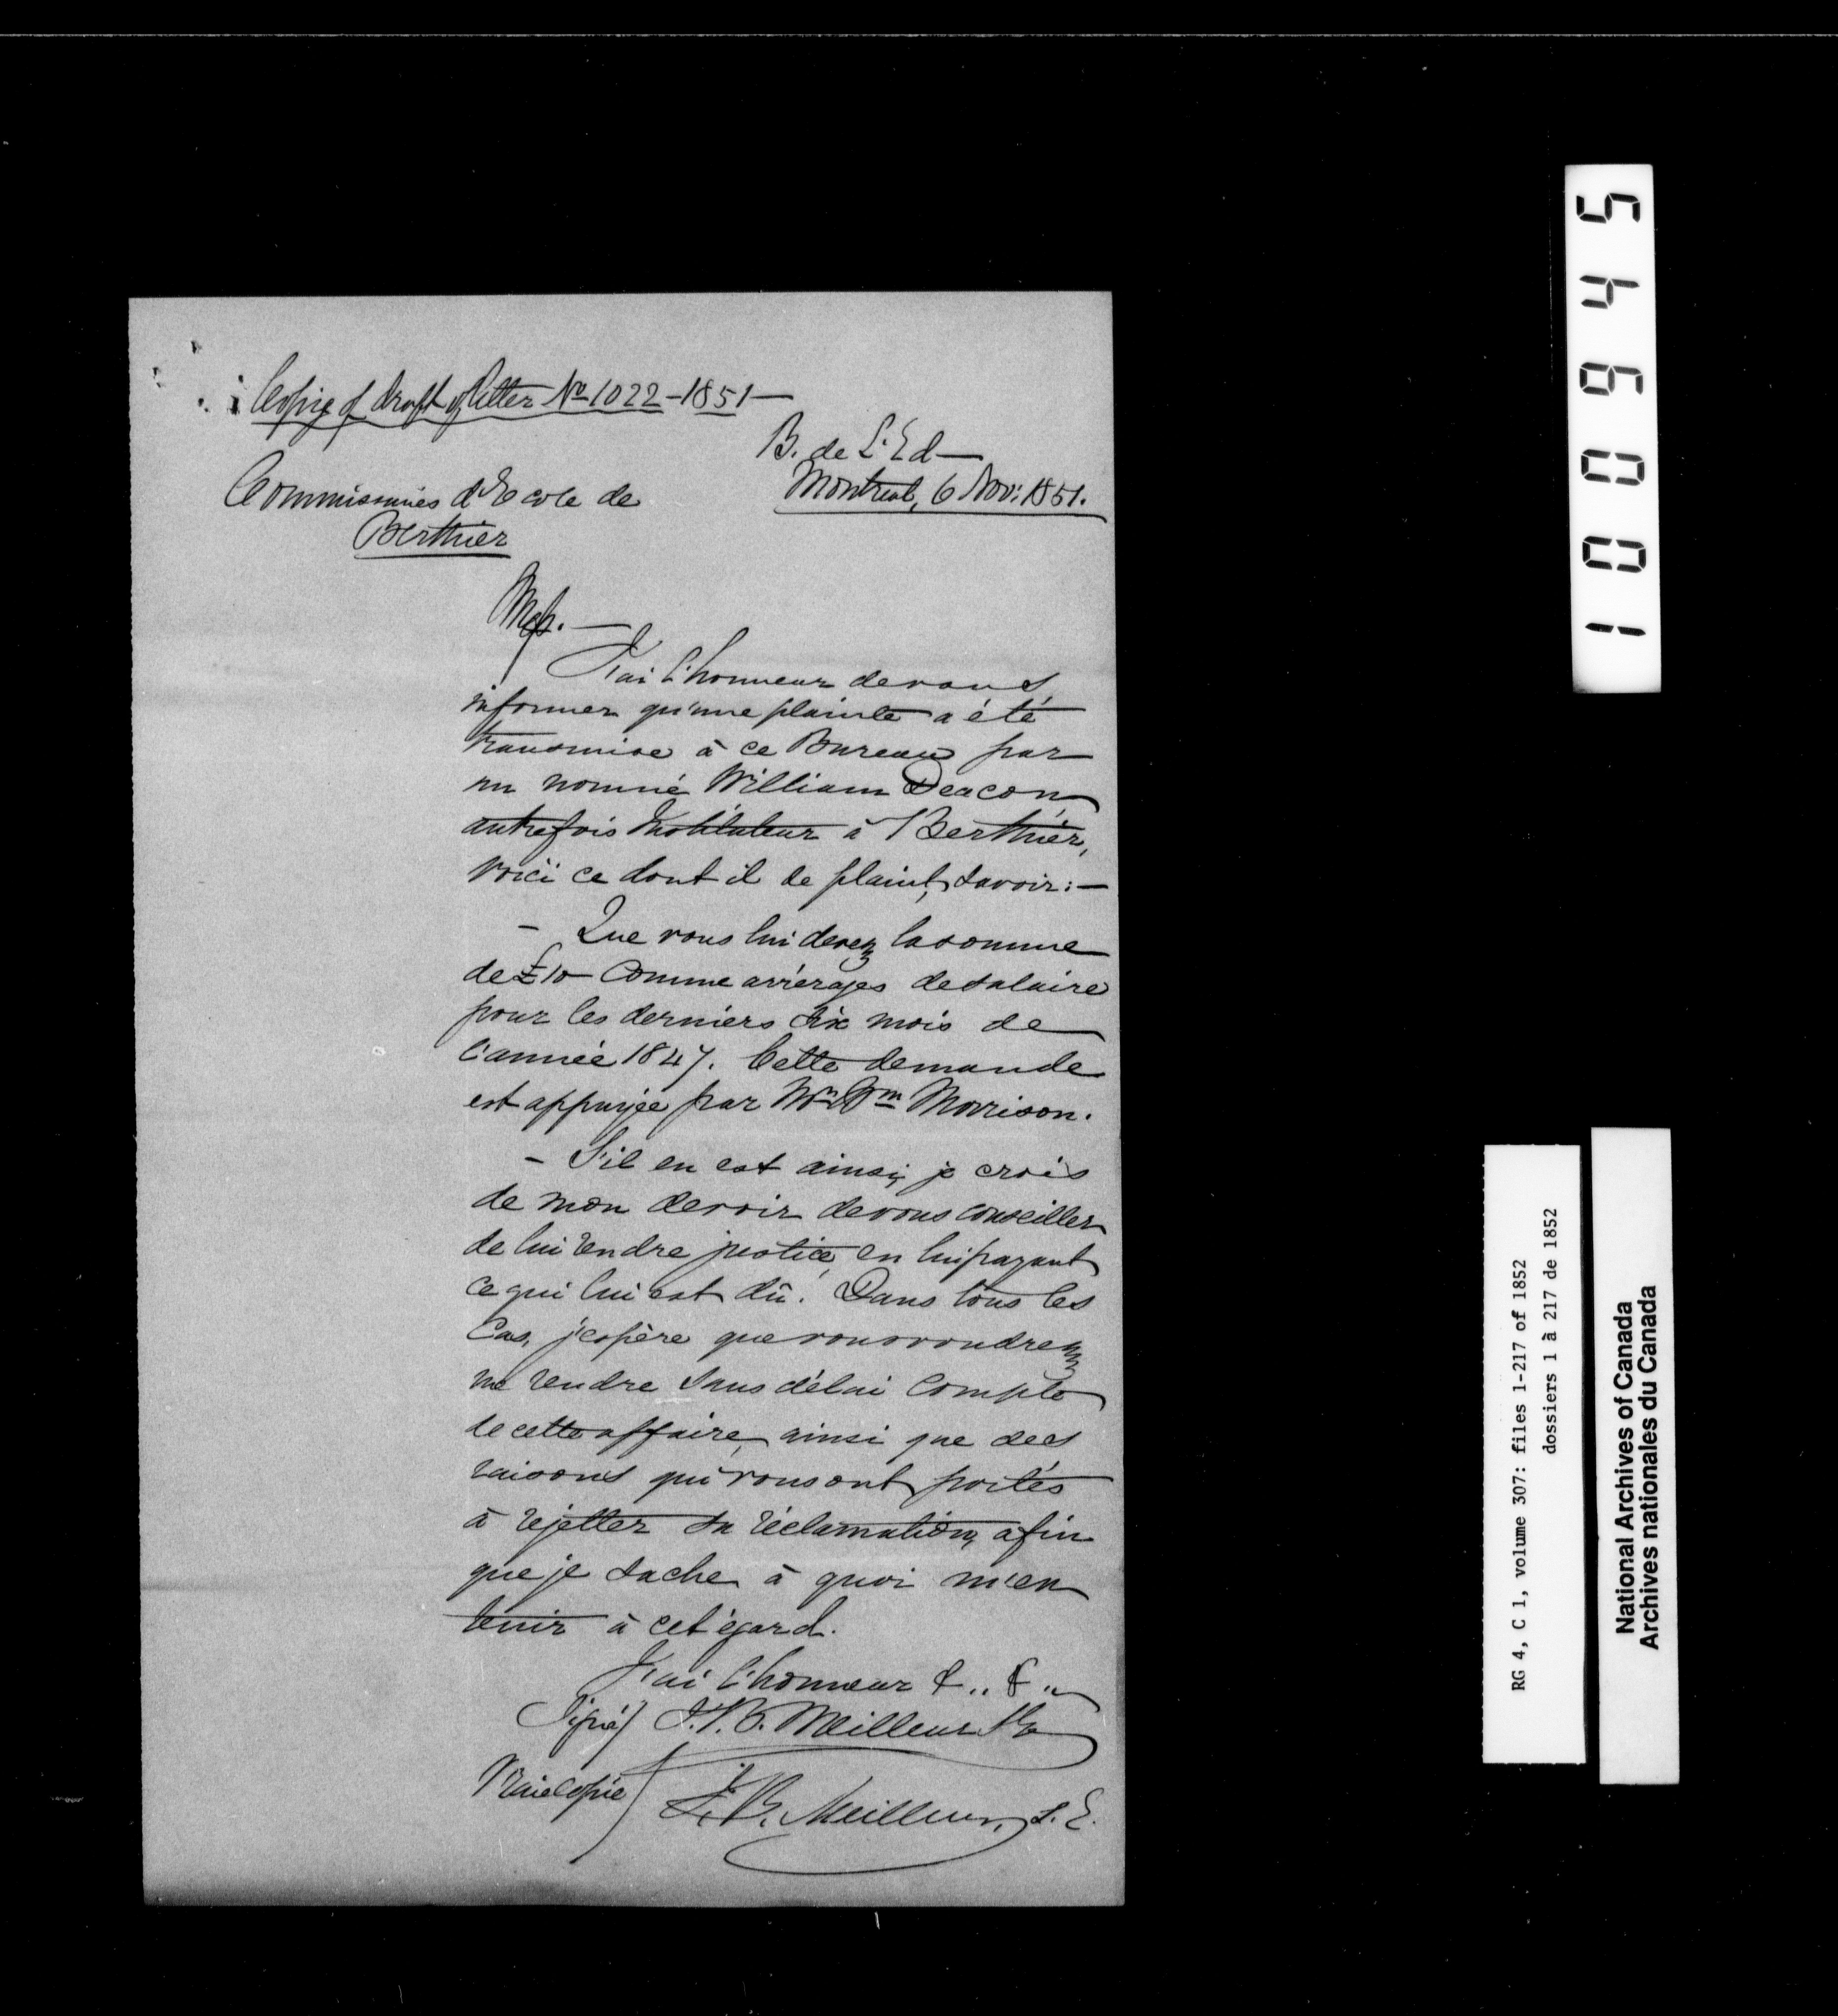 Copie of draft of letter No 1022-1851-
B. de L'Ed-
Montreal, 6 Nov: 1851.
Commissaires d'Ecole de
Berthier
Mess. -
J'ai l'honneur de vous
informer qu'une plainte a été
transmise à ce Bureau par
un nommé William Deacon,
autrefois Instituteur à Berthier,
voici ce dont il se plaint, savoir: -
- Que vous lui devez la somme
de £10 comme arrérages de salaire
pour les derniers six mois de
l'année 1847. Cette demande
est appuyée par Mr Wm Morrison.
- S'il en est ainsi, je crois
de mon devoir de vous conseiller
de lui rendre justice, en lui payant
ce qui lui est dû. Dans tous les
Cas, j'espère que vous voudrez
me rendre sans délai compte
de cette affaire, ainsi que des
raisons qui vous ont portés
à rejetter sa réclamation, afin
que je sache à quoi m'en
tenir à cet égard.
J'ai l'honneur & .. & ..
(Signé) J. B. Meilleur
Vraie Copie) J. B. Meilleur, S. E.
100945
RG 4, C 1, volume 307: files 1-217 of 1852
dossiers 1 à 217 de 1852
National Archives of Canada
Archives nationales du Canada